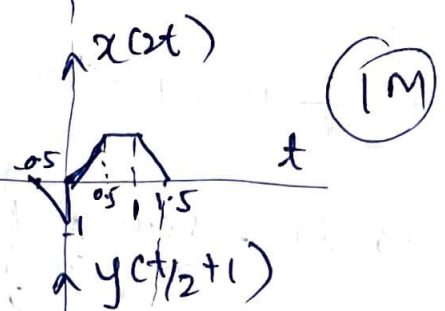 x(2t)
1M
t
-0.5
0.5 1 1.5
-1
y(t/2+1)